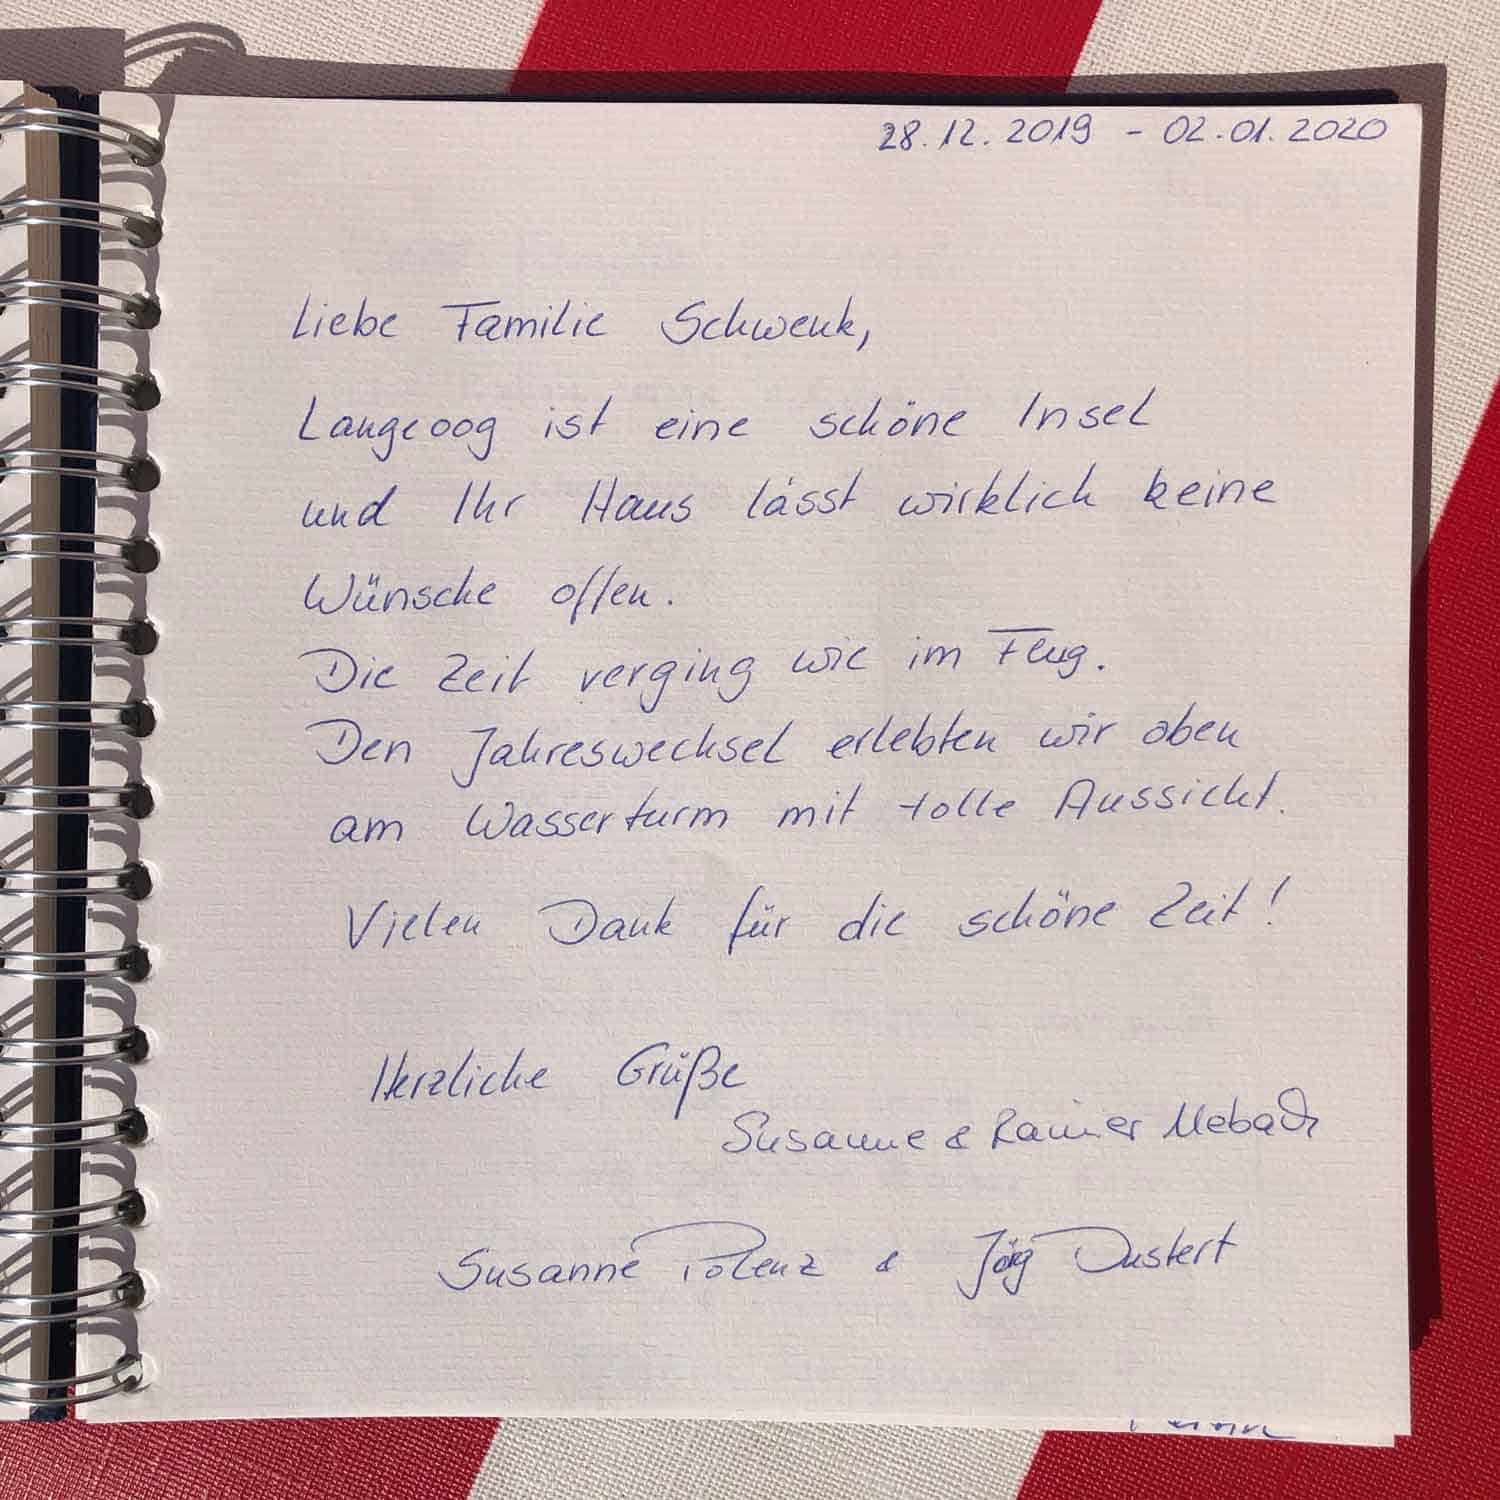 28.12.2019 - 02.01.2020
Liebe Familie Schwenk,
Langeoog ist eine schöne Insel
und Ihr Haus lässt wirklich keine
Wünsche offen.
Die Zeit verging wie im Flug.
Den Jahreswechsel erlebten wir oben
am Wasserturm mit tolle Aussicht.
Vielen Dank für die schöne Zeit!
Herzliche Grüße
Susanne & Rainer
Susanne Polenz & Jörg Dustert